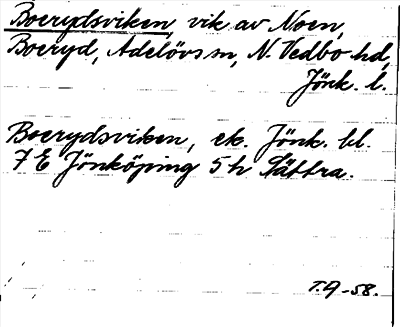 Boerydsviken, vik av Noen,
Boeryd, Adelövs sn, N. Vedbo hd,
Jönk. l.
Boerydsviken, ek. Jönk. bl.
7 E Jönköping 5 h Sättra.
T.A -58.